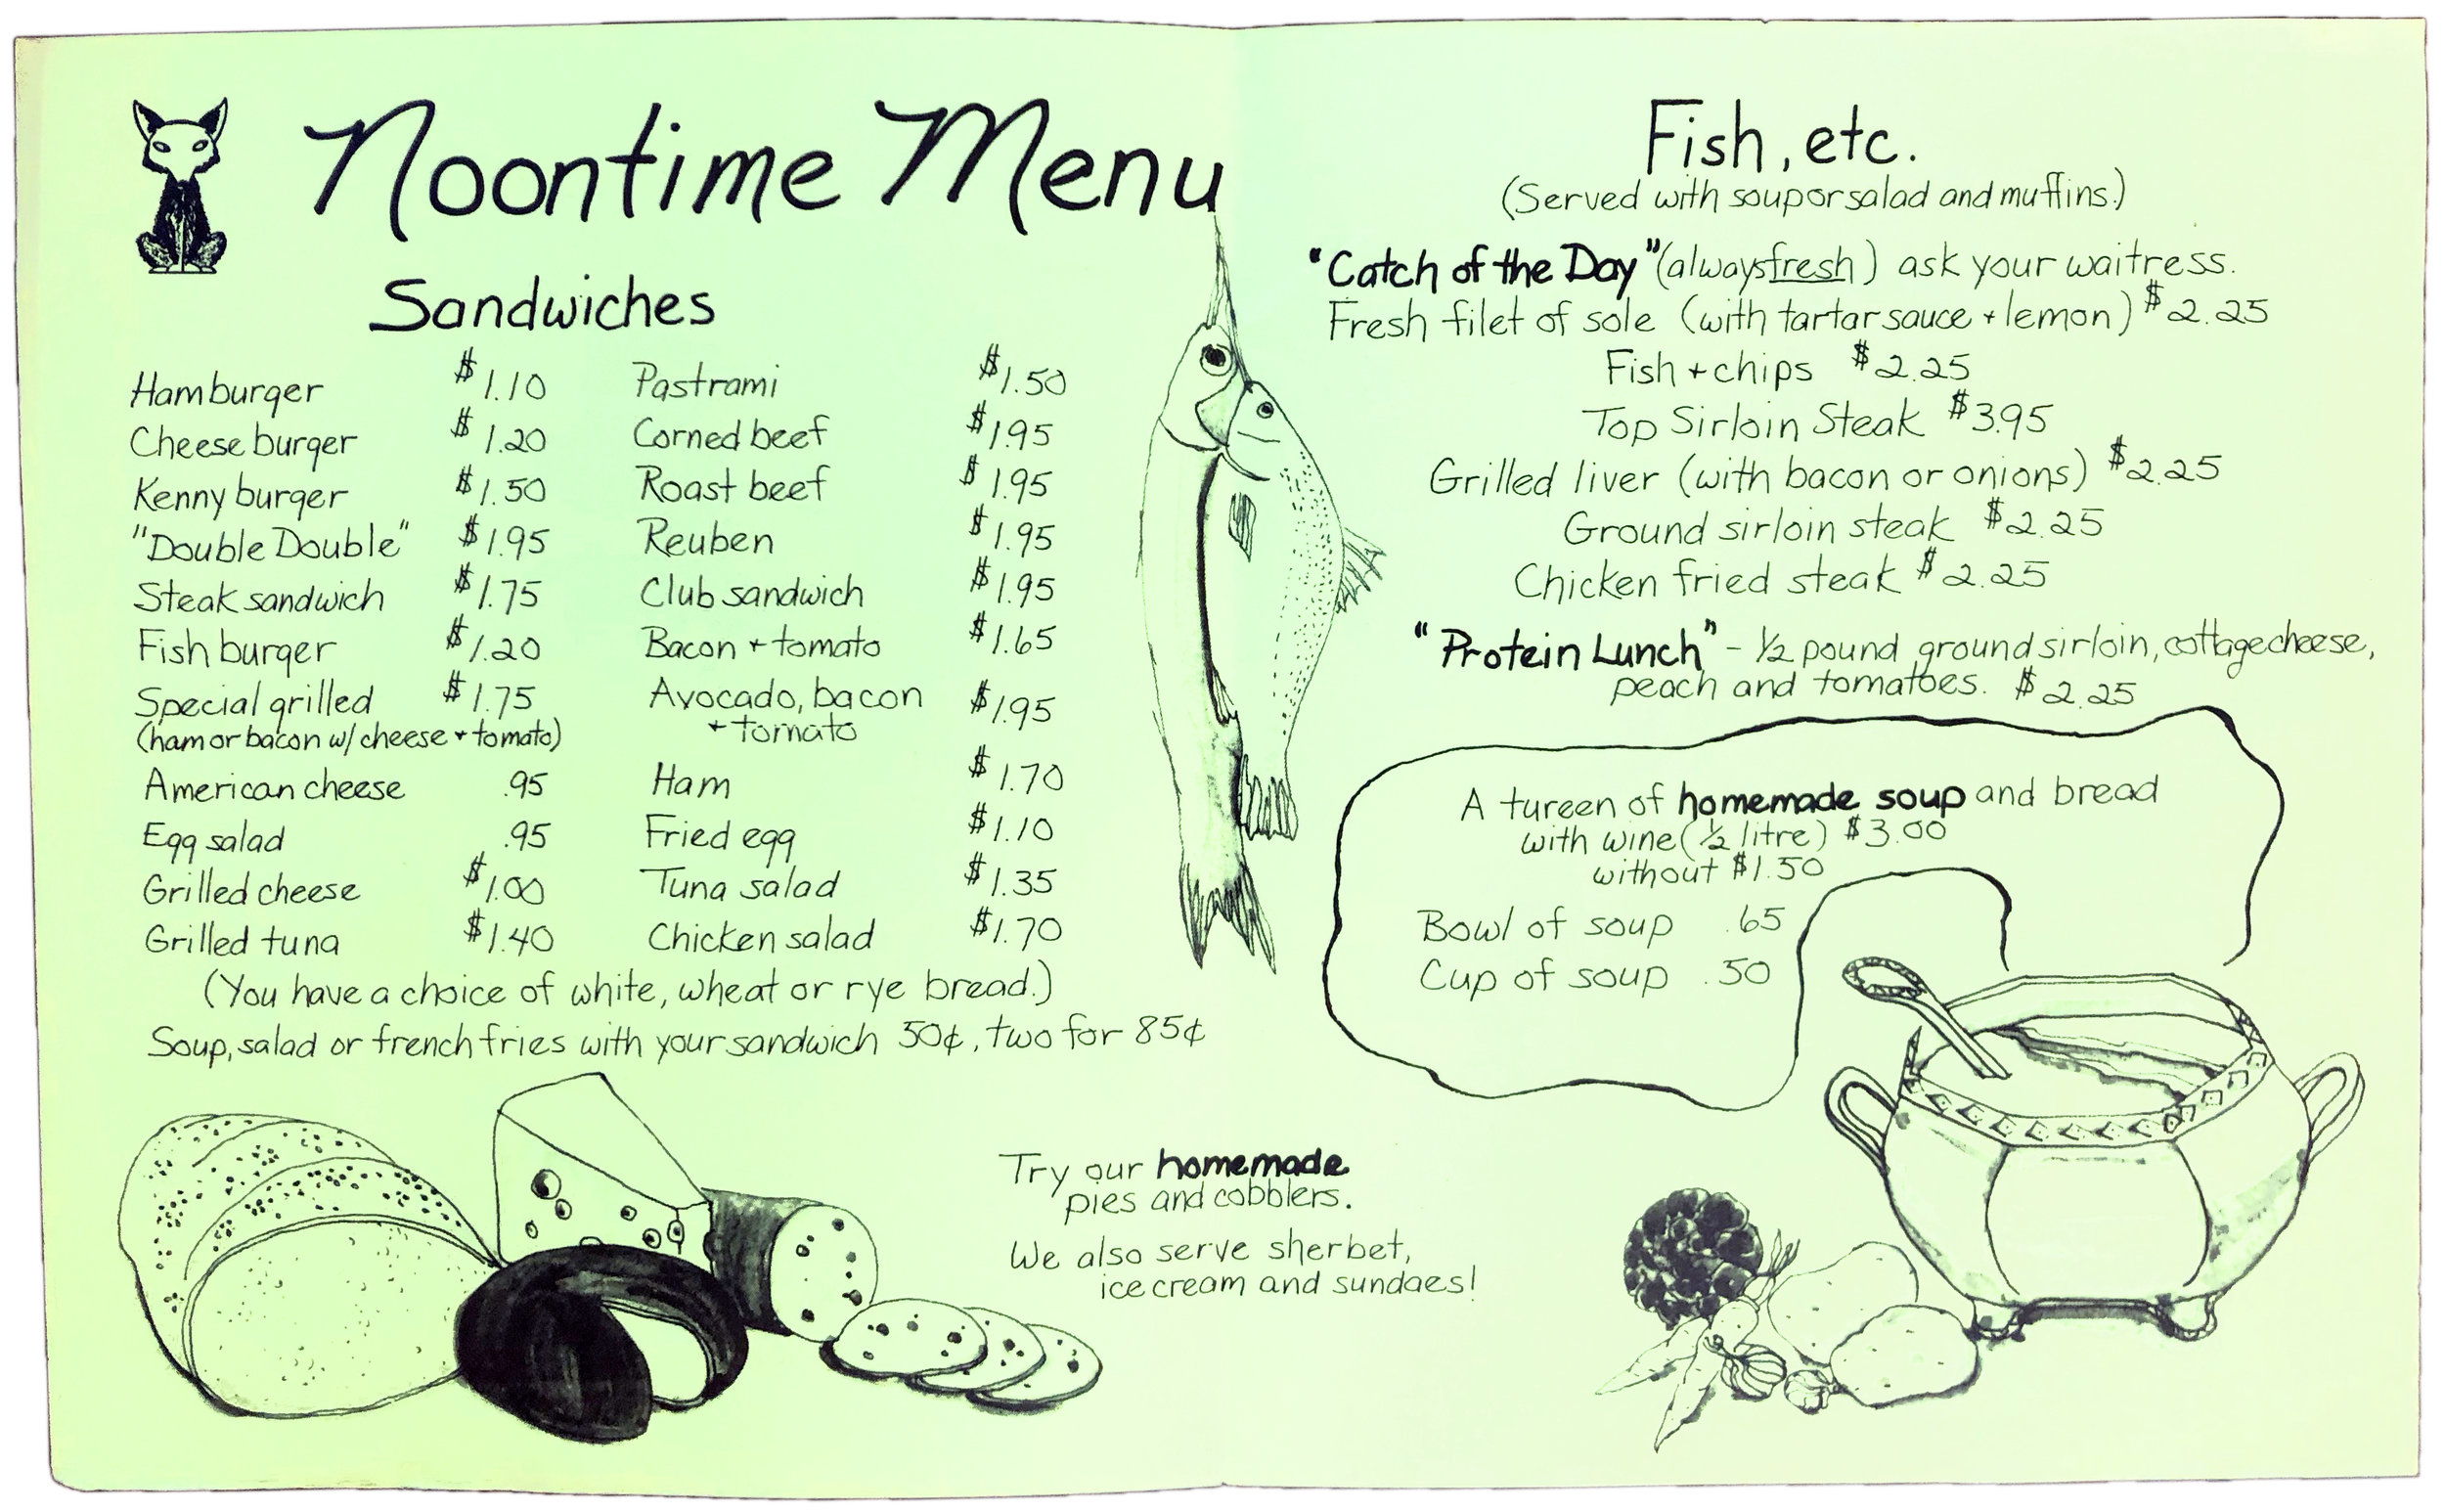 Noontime Menu
Sandwiches
Hamburger $1.10
Cheese burger $1.20
Kenny burger $1.50
"Double Double" $1.95
Steak sandwich $1.75
Fish burger $1.20
Special grilled $1.75
(ham or bacon w/ cheese + tomato)
American cheese .95
Egg salad .95
Grilled cheese $1.00
Grilled tuna $1.40
Pastrami $1.50
Corned beef $1.95
Roast beef $1.95
Reuben $1.95
Club sandwich $1.95
Bacon + tomato $1.65
Avocado, bacon $1.95
+ tomato
Ham $1.70
Fried egg $1.10
Tuna salad $1.35
Chicken salad $1.70
(You have a choice of white, wheat or rye bread.)
Soup, salad or french fries with your sandwich 50¢, two for 85¢
Try our homemade
pies and cobblers.
We also serve sherbet,
ice cream and sundaes!
Fish, etc.
(Served with soup or salad and muffins.)
"Catch of the Day" (always fresh) ask your waitress.
Fresh filet of sole (with tartar sauce + lemon) $2.25
Fish + chips $2.25
Top Sirloin Steak $3.95
Grilled liver (with bacon or onions) $2.25
Ground sirloin steak $2.25
Chicken fried steak $2.25
"Protein Lunch" - ½ pound ground sirloin, cottage cheese,
peach and tomatoes. $2.25
A tureen of homemade soup and bread
with wine (½ litre) $3.00
without $1.50
Bowl of soup .65
Cup of soup .50